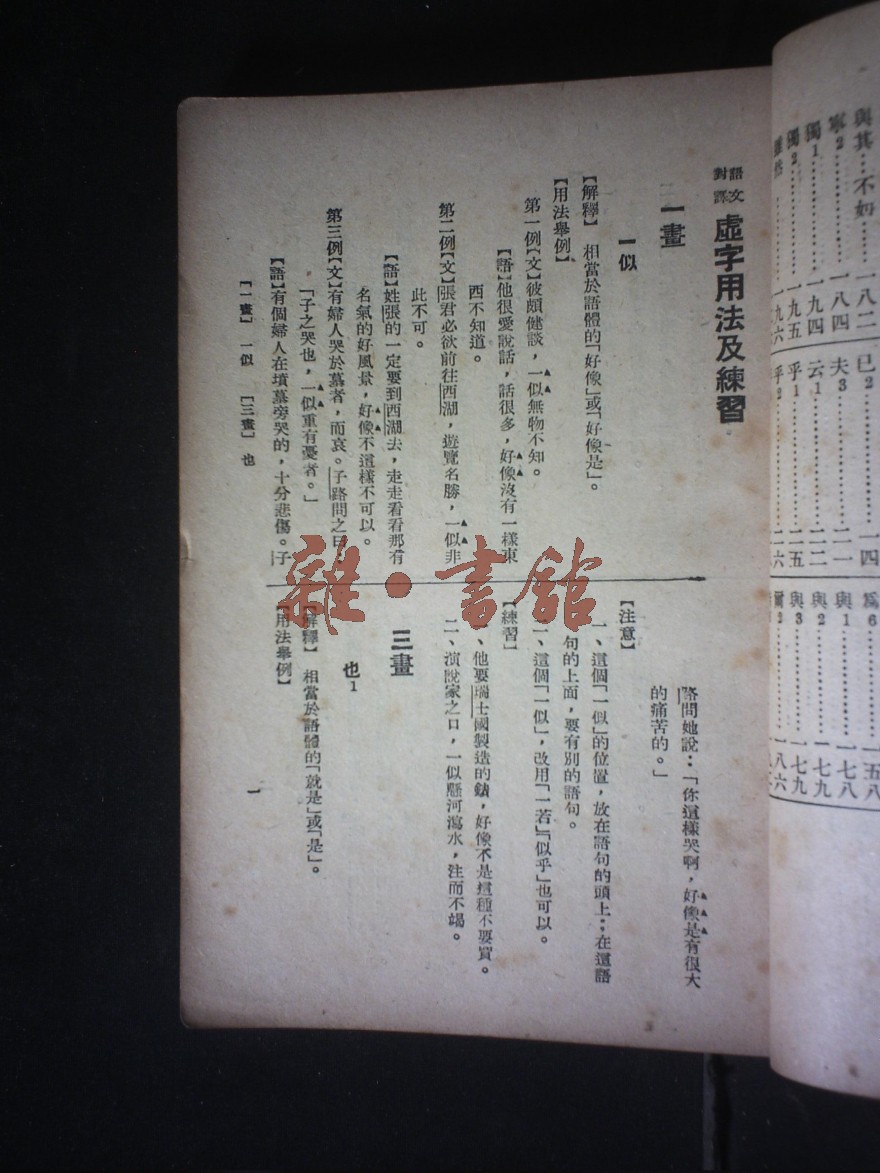 語文對譯 虛字用法及練習
一畫
一似
【解釋】 相當於語體的「好像」或「好像是」。
【用法舉例】
第一例【文】彼頗健談，一似無物不知。
【語】他很愛說話，話很多，好像沒有一樣東
西不知道。
第二例【文】張君必欲前往西湖，遊覽名勝，一似非
此不可。
【語】姓張的一定要到西湖去，走走看看那有
名氣的好風景，好像不這樣不可以。
第三例【文】有婦人哭於墓者，而哀。子路問之曰：
「子之哭也，一似重有憂者。」
【語】有個婦人在墳墓旁哭的，十分悲傷。子
路問她說：「你這樣哭啊，好像是有很大
的痛苦的。」
【注意】
一、這個「一似」的位置，放在語句的頭上；在這語
句的上面，要有別的語句。
二、這個「一似」，改用「一若」「似乎」也可以。
【練習】
一、他要瑞士國製造的錶，好像不是這種不要買。
二、演說家之口，一似懸河瀉水，注而不竭。
三畫
也1
【解釋】 相當於語體的「就是」或「是」。
【用法舉例】
【一畫】 一似 【三畫】 也
一
與其…不如………一八二
寧2………一八四
獨1………一九四
獨2………一九五
雖然………一九六
已2………一四
夫3………二一
云1………二二
乎1………二五
乎2………二六
爲6………一五八
與1………一七八
與2………一七九
與3………一七九
爾2………一八六
雜·書館